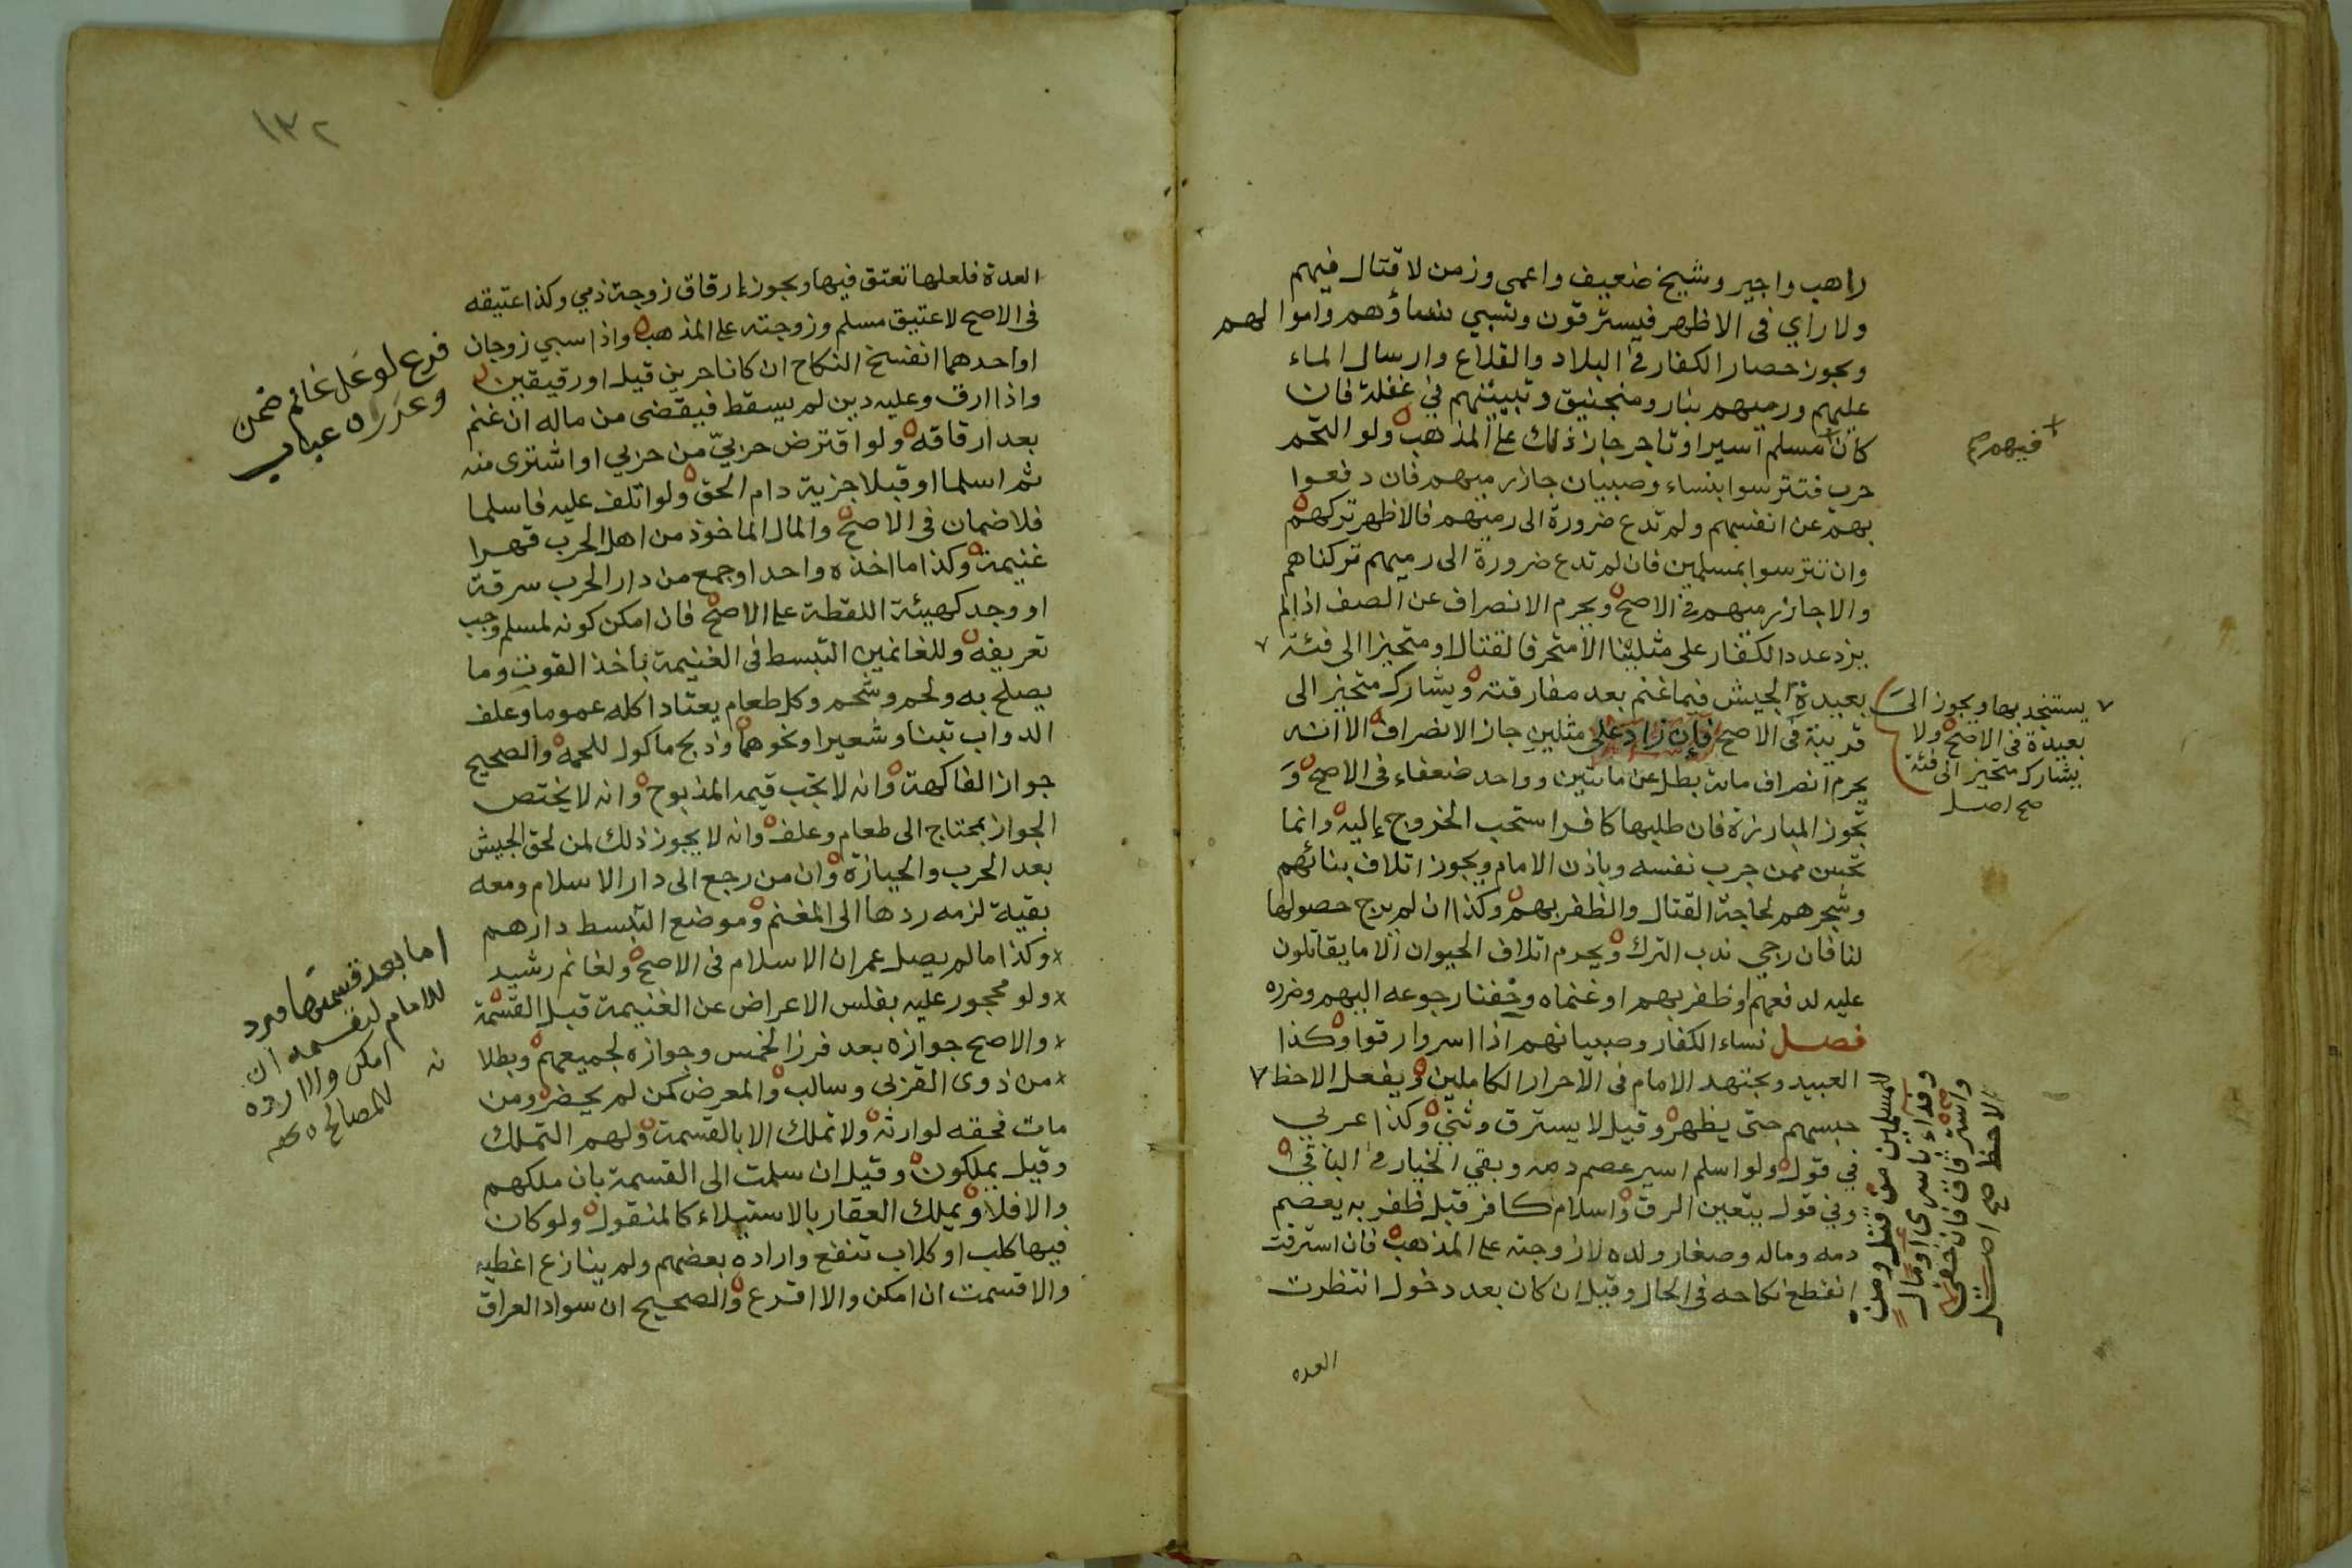 راهب واجير وشيخ ضعيف واعمى وزمن لا قتال فيهم
ولا راي فى الاظهر فيسترقون وتسبي نساؤهم واموالهم
ويجوز حصار الكفار في البلاد والقلاع وارسال الماء
عليهم ورميهم بنار ومنجنيق وتبييتهم في غفلة فان
كان مسلم اسير او تاجر جاز ذلك على المذهب ولو التحم
حرب فتترسوا بنساء وصبيان جاز رميهم فان دفعوا
بهم عن انفسهم ولم تدع ضرورة الى رميهم فالاظهر تركهم
وان تترسوا بمسلمين فان لم تدع ضرورة الى رميهم تركناهم
والا جاز رميهم في الاصح ويحرم الانصراف عن الصف اذا لم
يزد عدد الكفار على مثلينا الا متحرفا لقتال او متحيزا الى فئة ٧
بعيدة الجيش فيما غنم بعد مفارقته ويشارك متحيز الى
قريبة في الاصح فإن زاد على مثلين جاز الانصراف الا انه
يحرم انصراف مائة بطل عن مائتين وواحد ضعفاء فى الاصح و
تجوز المبارزة فان طلبها كافر استحب الخروج إليه وانما
تحسن ممن جرب نفسه وباذن الامام ويجوز اتلاف بنائهم
وشجرهم لحاجة القتال والظفر بهم وكذا ان لم يرج حصولها
لنا فان رجي ندب الترك ويحرم اتلاف الحيوان الا ما يقاتلون
عليه لدفعهم او ظفر بهم او غنمناه وخفنا رجوعه اليهم وضرره
فصل نساء الكفار وصبيانهم اذا اسروا رقوا وكذا
العبيد ويجتهد الامام فى الاحرار الكاملين ويفعل الاحظ ٧
حبسهم حتى يظهر وقيل لا يسترق وثني وكذا عربي
في قول ولو اسلم اسير عصم دمه وبقي الخيار في الباقي
وفي قول يتعين الرق واسلام كافر قبل ظفر به يعصم
دمه وماله وصغار ولده لا زوجته على المذهب فان استرقت
انقطع نكاحه فى الحال وقيل ان كان بعد دخول انتظرت
العده
فيهم صح
٧ يستنجد بها ويجوز الى
بعيدة فى الاصح ولا
يشارك متحيز الى فئة
صح اصل
للمسلمين من قتل ومن
وفداء باسرى او مال
واسترقاق فان خفي
الاحظ صح اصل
١٣٢
العدة فلعلها تعتق فيها ويجوز إرقاق زوجة ذمي وكذا عتيقه
فى الاصح لا عتيق مسلم وزوجته على المذهب واذا سبي زوجان
او احدهما انفسخ النكاح ان كانا حرين قيل او رقيقين
واذا ارق وعليه دين لم يسقط فيقضى من ماله ان غنم
بعد ارقاقه ولو اقترض حربيّ من حربي او اشترى منه
ثم اسلما او قبلا جزية دام الحق ولو اتلف عليه فاسلما
فلا ضمان فى الاصح والمال الماخوذ من اهل الحرب قهرا
غنيمة وكذا ما اخذه واحد او جمع من دار الحرب سرقة
او وجد كهيئة اللقطة على الاصح فان امكن كونه لمسلم وجب
تعريفه وللغانمين التبسط فى الغنيمة باخذ القوت وما
يصلح به ولحم وشحم وكل طعام يعتاد اكله عموما وعلف
الدواب تبنا وشعيرا ونحوهما وذبح ماكول للحمه والصحيح
جواز الفاكهة وانه لا تجب قيمة المذبوح وانه لا يختص
الجواز بمحتاج الى طعام وعلف وانه لا يجوز ذلك لمن لحق الجيش
بعد الحرب والحيازة وان من رجع الى دار الاسلام ومعه
بقية لزمه ردها الى المغنم وموضع التبسط دارهم
وكذا ما لم يصل عمران الاسلام فى الاصح ولغانم رشيد
ولو محجور عليه بفلس الاعراض عن الغنيمة قبل القسمة
والاصح جوازه بعد فرز الخمس وجوازه لجميعهم وبطلا
نه
من ذوى القربى وسالب والمعرض كمن لم يحضر ومن
مات فحقه لوارثه ولا تملك الا بالقسمة ولهم التملك
وقيل يملكون وقيل ان سلمت الى القسمة بان ملكهم
والا فلا ويملك العقار بالاستيلاء كالمنقول ولو كان
فيها كلب او كلاب تنفع واراده بعضهم ولم ينازع اعطيه
والا قسمت ان امكن والا اقرع والصحيح ان سواد العراق
فرع لو غل غانم ضمن
وعزر ه عباب
اما بعد قسمتها فيرد
للامام ليقسمه ان
امكن والا رده
للمصالح ه